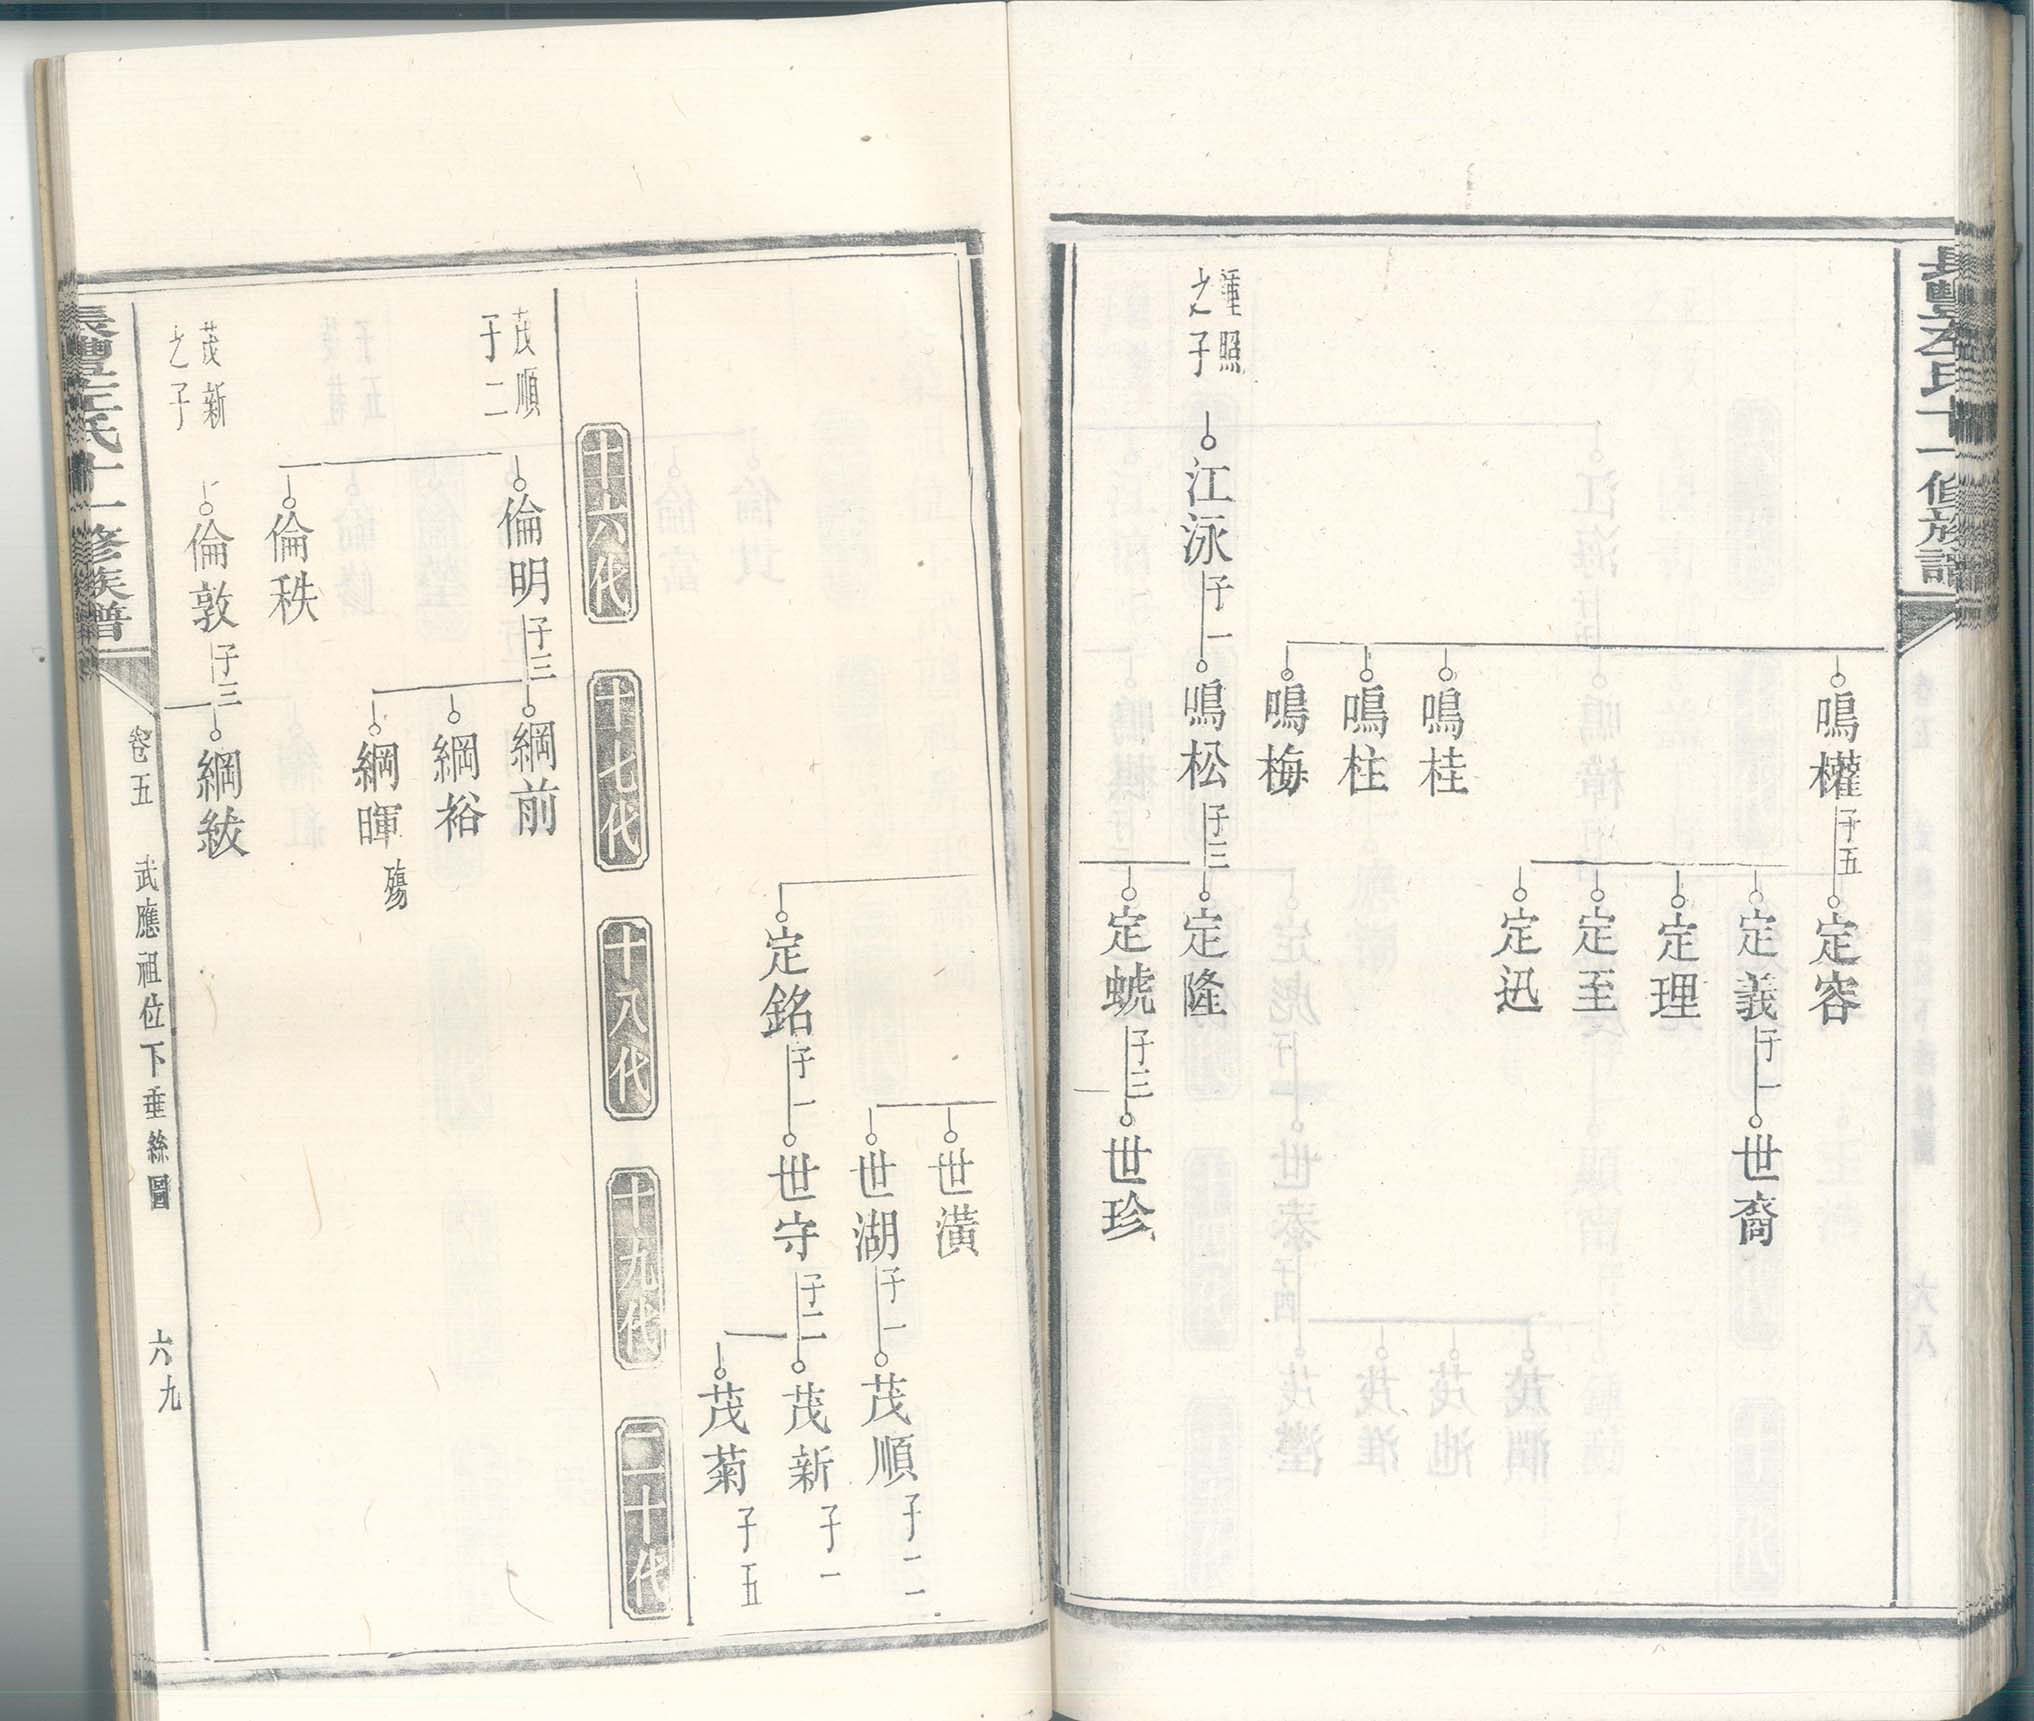 長豐左氏十一修族譜
鳴權 子五
定容
定義 子一
世裔
定理
定至
定迅
鳴桂
鳴柱
鳴梅
之子
江泳 子一
鳴松 子三
定隆
定蜿 子三
世珍
世潢
世湖 子一
茂順 子二
定銘 子一
世守 子二
茂新 子一
茂菊 子五
十六代
十七代
十八代
十九代
二十代
茂順
子二
倫明 子三
綱前
綱裕
綱暉 殤
倫秩
茂新
之子
倫敦 子三
綱紱
長豐左氏十一修族譜
卷五
武應祖位下垂絲圖
六九